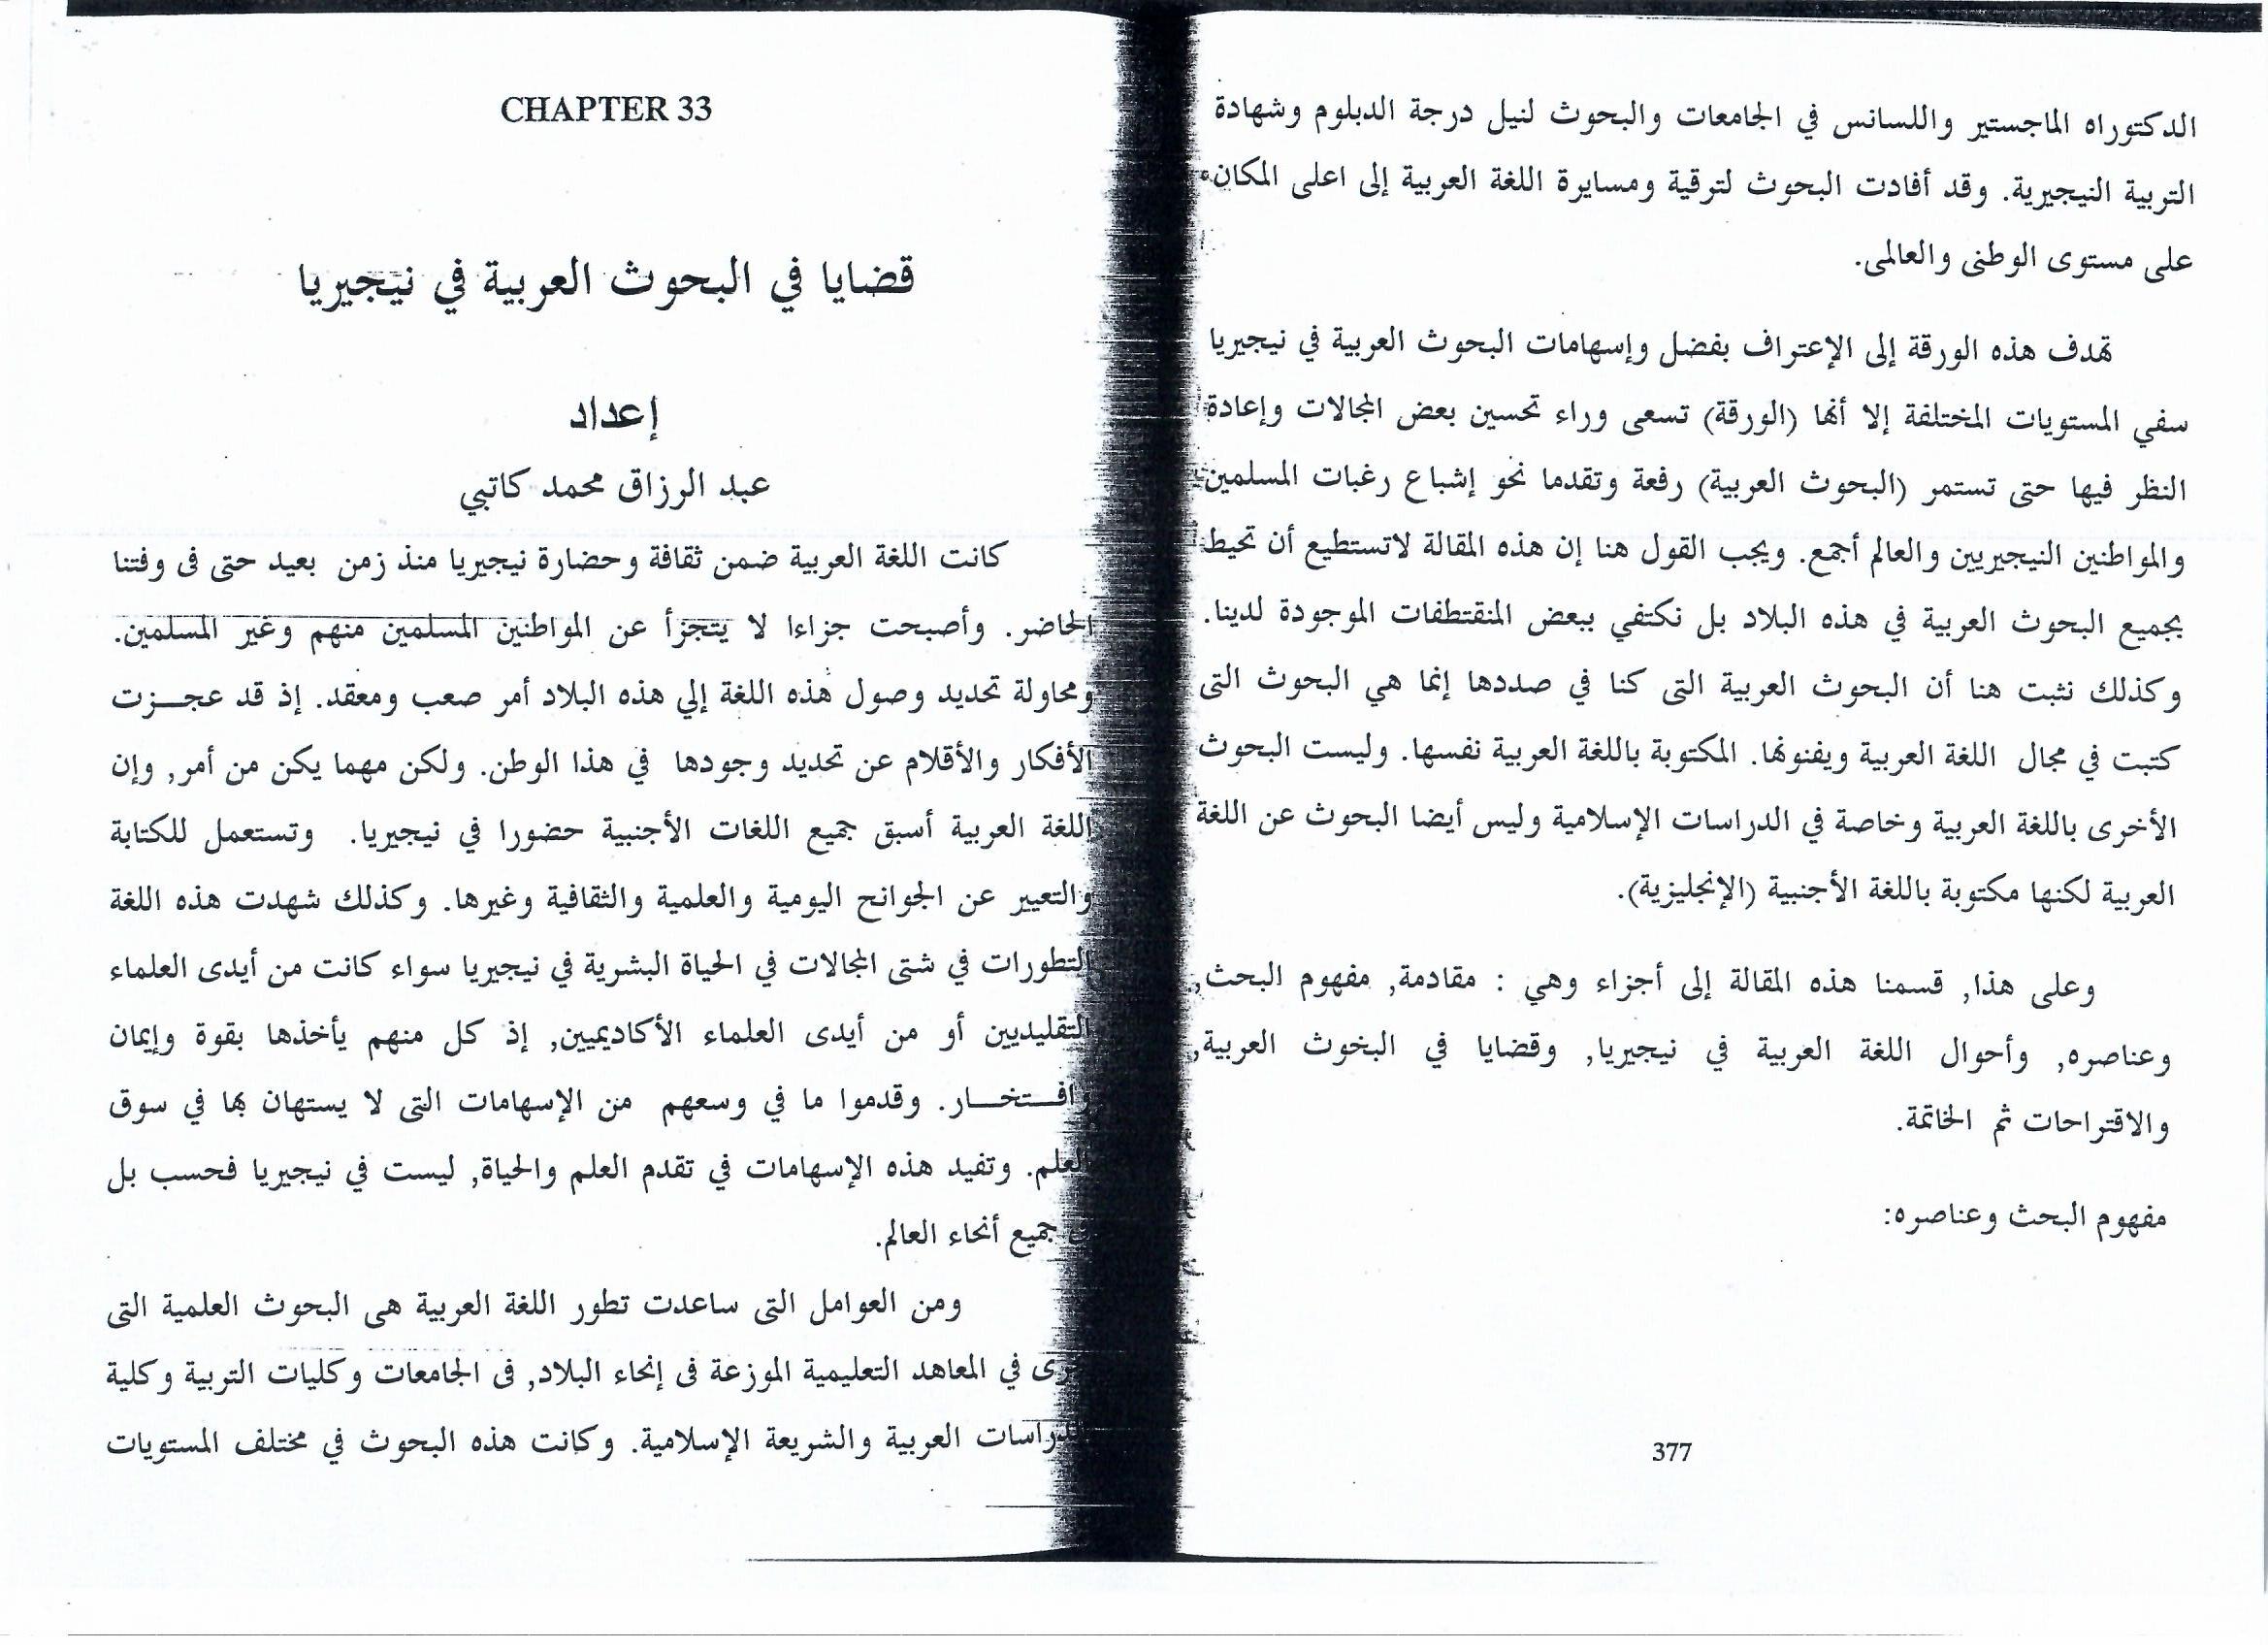 CHAPTER 33
قضايا في البحوث العربية في نيجيريا
إعداد
عبد الرزاق محمد كاتبي
كانت اللغة العربية ضمن ثقافة وحضارة نيجيريا منذ زمن بعيد حتى فى وفتنا
الحاضر. وأصبحت جزاءا لا يتجزأ عن المواطنين المسلمين منهم وغير المسلمين.
ومحاولة تحديد وصول هذه اللغة إلي هذه البلاد أمر صعب ومعقد. إذ قد عجـــزت
الأفكار والأقلام عن تحديد وجودها في هذا الوطن. ولكن مهما يكن من أمر, وإن
اللغة العربية أسبق جميع اللغات الأجنبية حضورا في نيجيريا. وتستعمل للكتابة
والتعيير عن الجوانح اليومية والعلمية والثقافية وغيرها. وكذلك شهدت هذه اللغة
التطورات في شتى المجالات في الحياة البشرية في نيجيريا سواء كانت من أيدى العلماء
التقليديين أو من أيدى العلماء الأكاديميين, إذ كل منهم يأخذها بقوة وإيمان
وافــتخــار. وقدموا ما في وسعهم من الإسهامات التى لا يستهان بها في سوق
العلم. وتفيد هذه الإسهامات في تقدم العلم والحياة, ليست في نيجيريا فحسب بل
جميع أنحاء العالم.
ومن العوامل التى ساعدت تطور اللغة العربية هى البحوث العلمية التى
في المعاهد التعليمية الموزعة فى إنحاء البلاد, فى الجامعات وكليات التربية وكلية
الدراسات العربية والشريعة الإسلامية. وكانت هذه البحوث في مختلف المستويات
الدكتوراه الماجستير واللسانس في الجامعات والبحوث لنيل درجة الدبلوم وشهادة
التربية النيجيرية. وقد أفادت البحوث لترقية ومسايرة اللغة العربية إلى اعلى المكان
على مستوى الوطنى والعالمى.
تهدف هذه الورقة إلى الإعتراف بفضل وإسهامات البحوث العربية في نيجيريا
سفي المستويات المختلفة إلا أنها (الورقة) تسعى وراء تحسين بعض المجالات وإعادة
النظر فيها حتى تستمر (البحوث العربية) رفعة وتقدما نحو إشباع رغبات المسلمين
والمواطنين النيجيريين والعالم أجمع. ويجب القول هنا إن هذه المقالة لاتستطيع أن تحيط
بجميع البحوث العربية في هذه البلاد بل نكتفي ببعض المنقتطفات الموجودة لدينا.
وكذلك نثبت هنا أن البحوث العربية التى كنا في صددها إنما هي البحوث التى
كتبت في مجال اللغة العربية ويفنونها. المكتوبة باللغة العربية نفسها. وليست البحوث
الأخرى باللغة العربية وخاصة في الدراسات الإسلامية وليس أيضا البحوث عن اللغة
العربية لكنها مكتوبة باللغة الأجنبية (الإنجليزية).
وعلى هذا, قسمنا هذه المقالة إلى أجزاء وهي : مقادمة, مفهوم البحث,
وعناصره, وأحوال اللغة العربية في نيجيريا, وقضايا في البخوث العربية,
والاقتراحات ثم الخاتمة.
مفهوم البحث وعناصره:
377